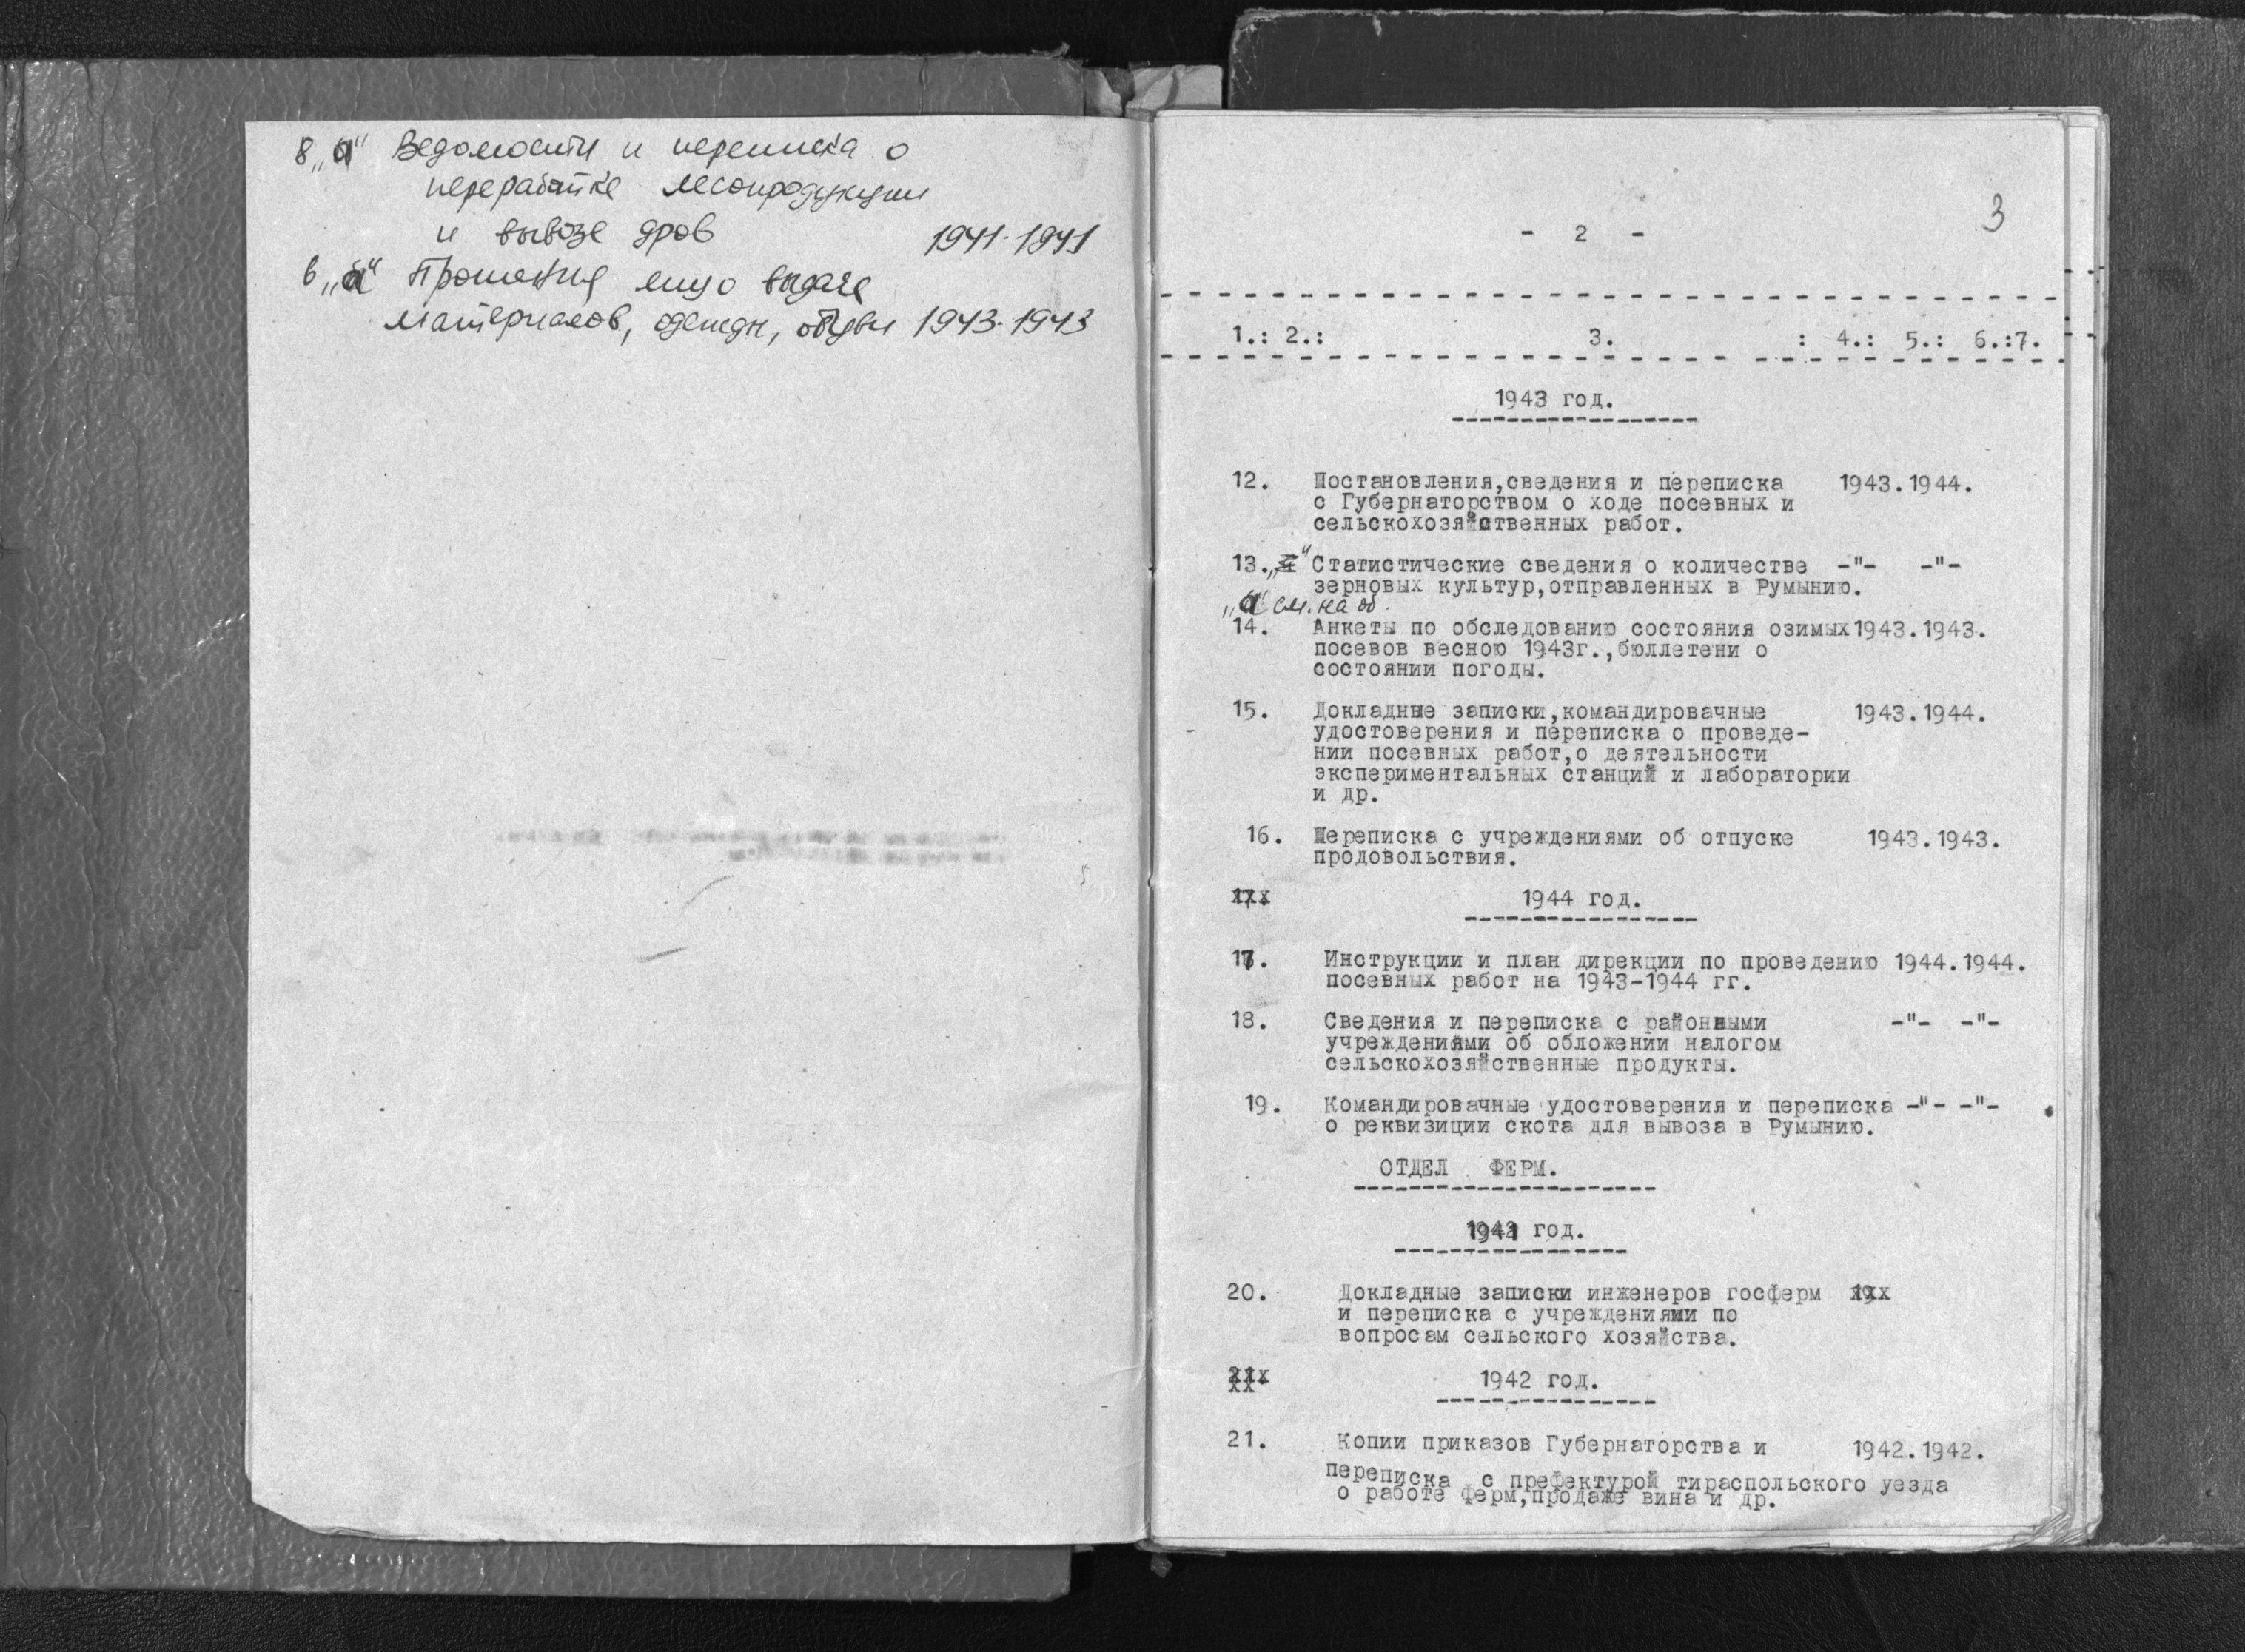 8 „а" Ведомости и переписка о
переработке лесопродукции
и вывозе дров 1941-1941
„а" Прошения лиц о выдаче
материалов, одежды, обуви 1943-1943
3
- 2 -
1.: 2.: 3. : 4.: 5.: 6.:7.
1943 год.
12. Постановления,сведения и переписка 1943.1944.
с Губернаторством о ходе посевных и
сельскохозяйственных работ.
13. Статистические сведения о количестве -"- -"-
зерновых культур,отправленных в Румынию.
„а" см. на об.
14. Анкеты по обследованию состояния озимых 1943.1943.
посевов весною 1943г.,бюллетени о
состоянии погоды.
15. Докладные записки,командировачные 1943.1944.
удостоверения и переписка о проведе-
нии посевных работ,о деятельности
экспериментальных станций и лаборатории
и др.
16. Переписка с учреждениями об отпуске 1943.1943.
продовольствия.
1944 год.
17. Инструкции и план дирекции по проведению 1944.1944.
посевных работ на 1943-1944 гг.
18. Сведения и переписка с районными -"- -"-
учреждениями об обложении налогом
сельскохозяйственные продукты.
19. Командировачные удостоверения и переписка -"- -"-
о реквизиции скота для вывоза в Румынию.
ОТДЕЛ ФЕРМ.
1941 год.
20. Докладные записки инженеров госферм
и переписка с учреждениями по
вопросам сельского хозяйства.
1942 год.
21. Копии приказов Губернаторства и 1942.1942.
переписка с префектурой тираспольского уезда
о работе ферм,продаже вина и др.